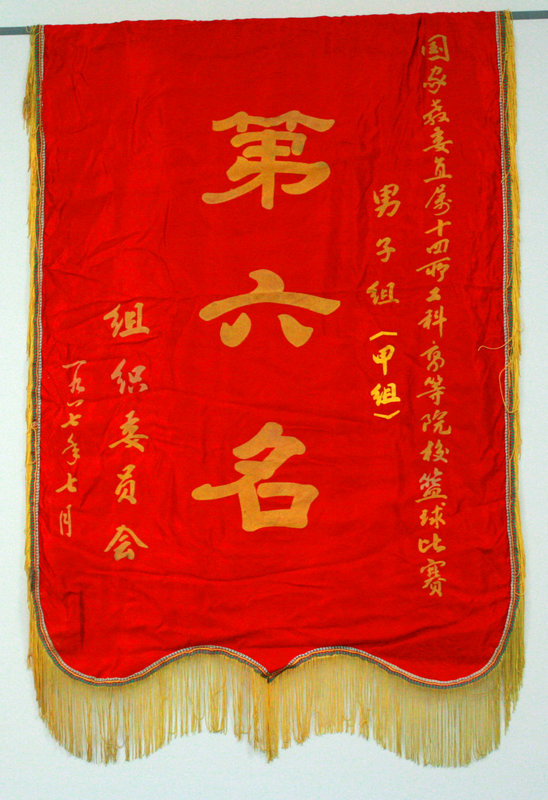 国家教委直属十四所工科高等院校篮球比赛
男子组（甲组）
第六名
组织委员会
一九八七年七月